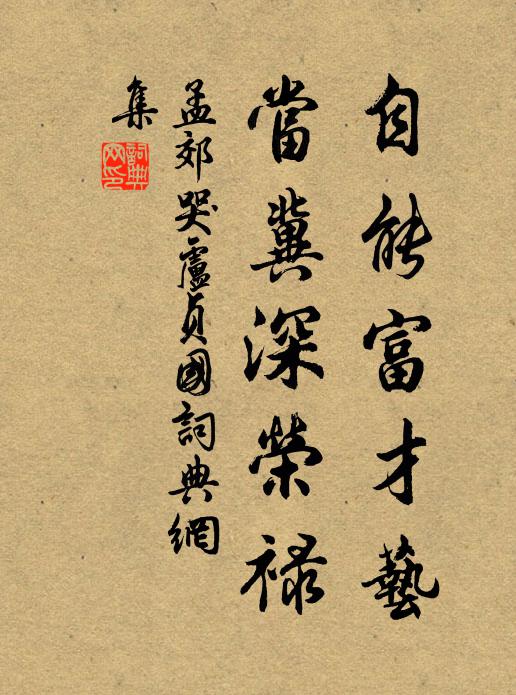 自能富才藝
當冀深榮祿
孟郊哭盧貞國詞典網
集
詞典網印